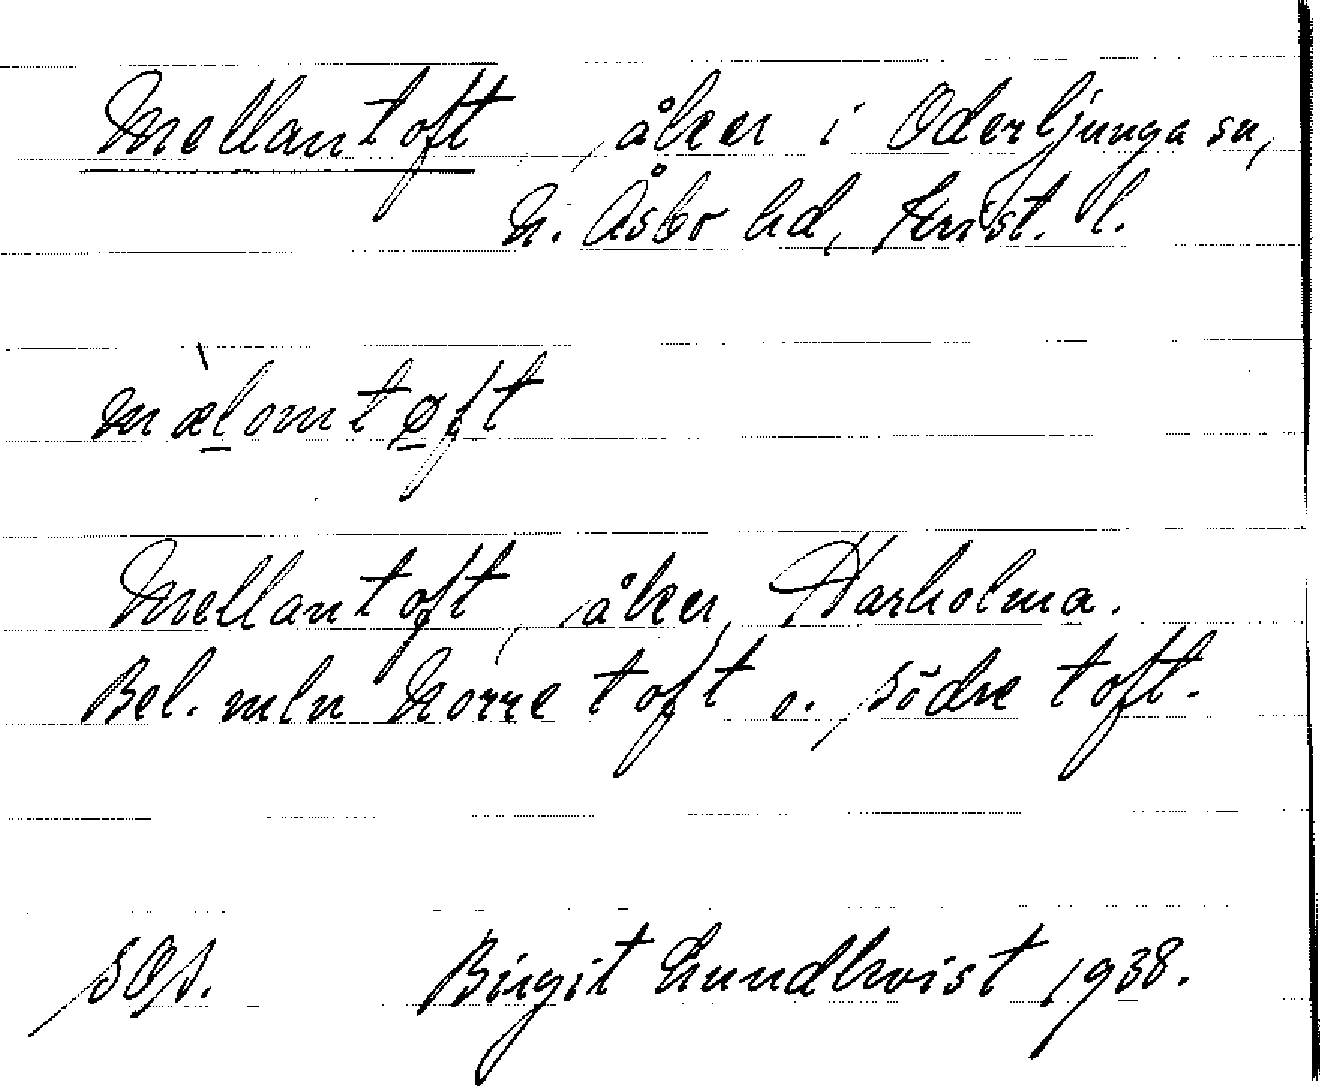 Mellantoft, åker i Oderljunga sn,
N. Åsbo hd, Krist. l.
mæ̀lomtøft
Mellantoft, åker, Harholma.
Bel. mln Norre toft o. södre toft.
Birgit Lundkvist 1938.